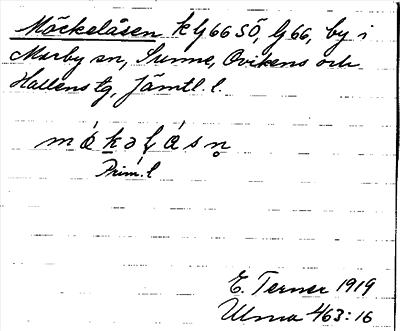 Mäckelåsen k G66 SÖ, G66, by i
Marby sn, Sunne, Ovikens och
Hallens tg, Jämtl. l.
Prim. l
E. Terner 1919
Ulma 463:16